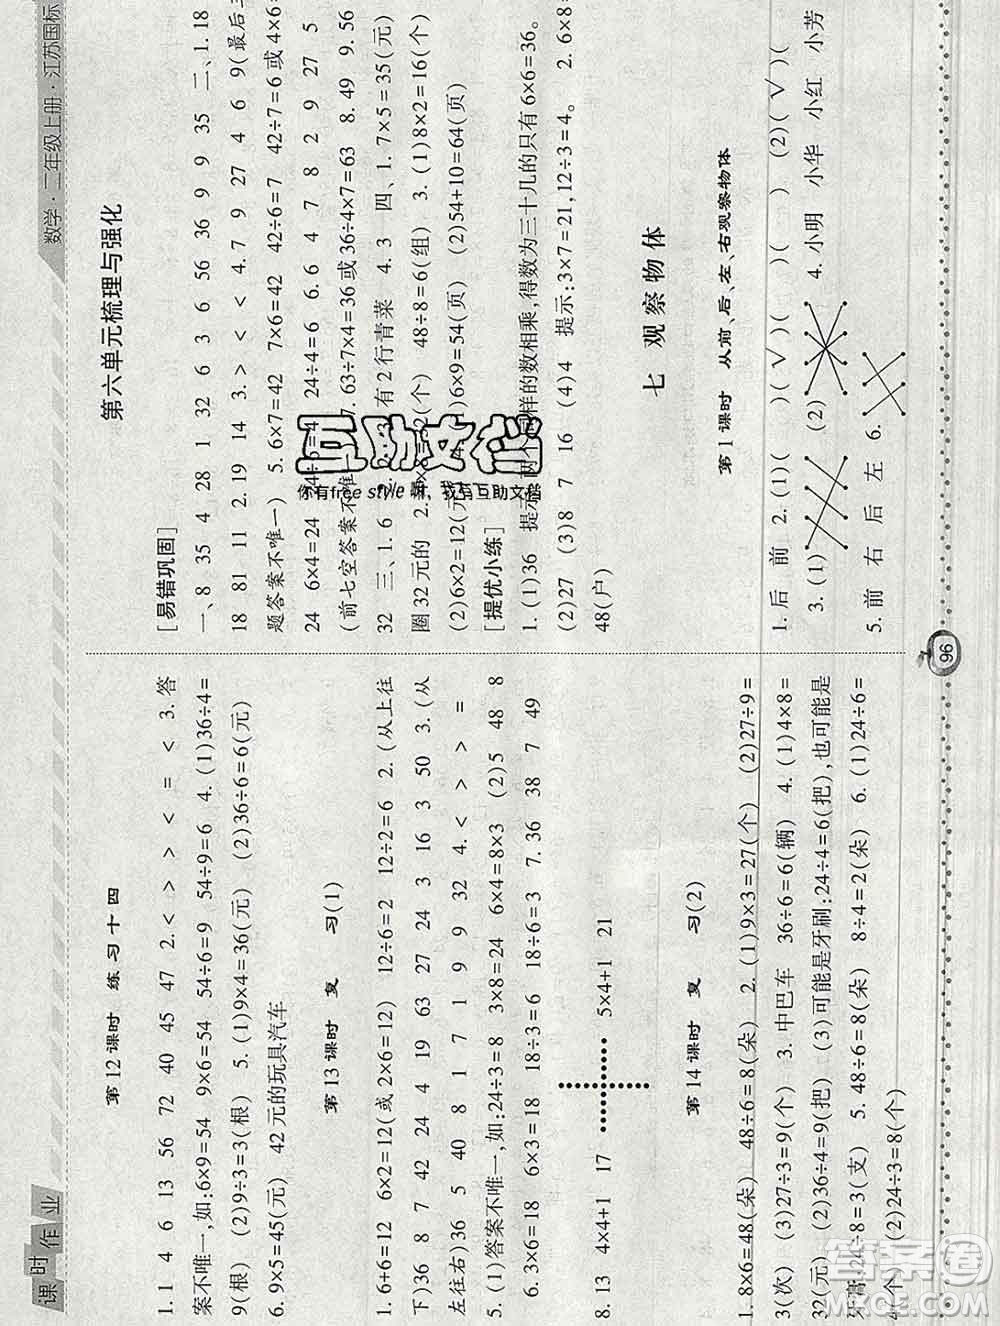 课时作业
数学·二年级上册·江苏国标
第12课时 练习十四
1. 1 4 6 13 56 72 40 45 47 2. < > > < = < 3. 答
案不唯一,如:6×9=54 9×6=54 54÷6=9 54÷9=6 4. (1)36÷4=
9(根) (2)9÷3=3(根) 5. (1)9×4=36(元) (2)36÷6=6(元)
6. 9×5=45(元) 42元的玩具汽车
第13课时 复 习(1)
1. 6+6=12 6×2=12(或2×6=12) 12÷6=2 12÷2=6 2. (从上往
下)36 8 7 42 24 4 19 63 27 24 3 16 3 50 3. (从
左往右)36 5 40 8 1 7 1 9 9 32 4. < > > =
5. (1)答案不唯一,如:24÷3=8 3×8=24 6×4=8×3 (2)5 48 8
6. 3×6=18 6×3=18 18÷3=6 18÷6=3 7. 36 38 7 49
8. 13 4×4+1 17 5×4+1 21
第14课时 复 习(2)
1. 8×6=48(朵) 48÷6=8(朵) 2. (1)9×3=27(个) (2)27÷9=
3(次) (3)27÷3=9(个) 3. 中巴车 36÷6=6(辆) 4. (1)4×8=
32(元) (2)36÷4=9(把) (3)可能是牙刷:24÷4=6(把),也可能是
牙膏:24÷8=3(支) 5. 48÷6=8(朵) 8÷4=2(朵) 6. (1)24÷6=
4(个) (2)24÷3=8(个)
第六单元梳理与强化
[易错巩固]
一、8 35 4 28 1 32 6 3 6 56 36 9 9 35 二、1. 18
18 81 11 2. 19 14 3. > < < 4. 7 9 27 4 6 9(最后
题答案不唯一) 5. 6×7=42 7×6=42 42÷6=7 42÷7=6或4×6=
24 6×4=24 24÷4=6 6. 6 4 7 8 2 9 27 5
(前七空答案不唯 7. 63÷7×4=36或36÷4×7=63 8. 49 9. 56
32 三、1. 6 有2行青菜 4. 3 四、1. 7×5=35(元)
圈32元的 2. (个) 48÷8=6(组) 3. (1)8×2=16(个)
(2)6×2=12( 6×9=54(页) (2)54+10=64(页)
[提优小练]
1. (1)36 提示: 样的数相乘,得数为三十几的只有6×6=36。
(2)27 (3)8 7 16 (4)4 提示:3×7=21,12÷3=4。 2. 6×8=
48(户)
七 观察物体
第1课时 从前、后、左、右观察物体
1. 后 前 2. (1)( )(√)( )( ) (2)(√)( )
3. (1) (2) 4. 小明 小华 小红 小芳
5. 前 右 后 左 6.
96
互助文档
你有free style 嘛,我有互助文档
答案圈
MXQE.COM